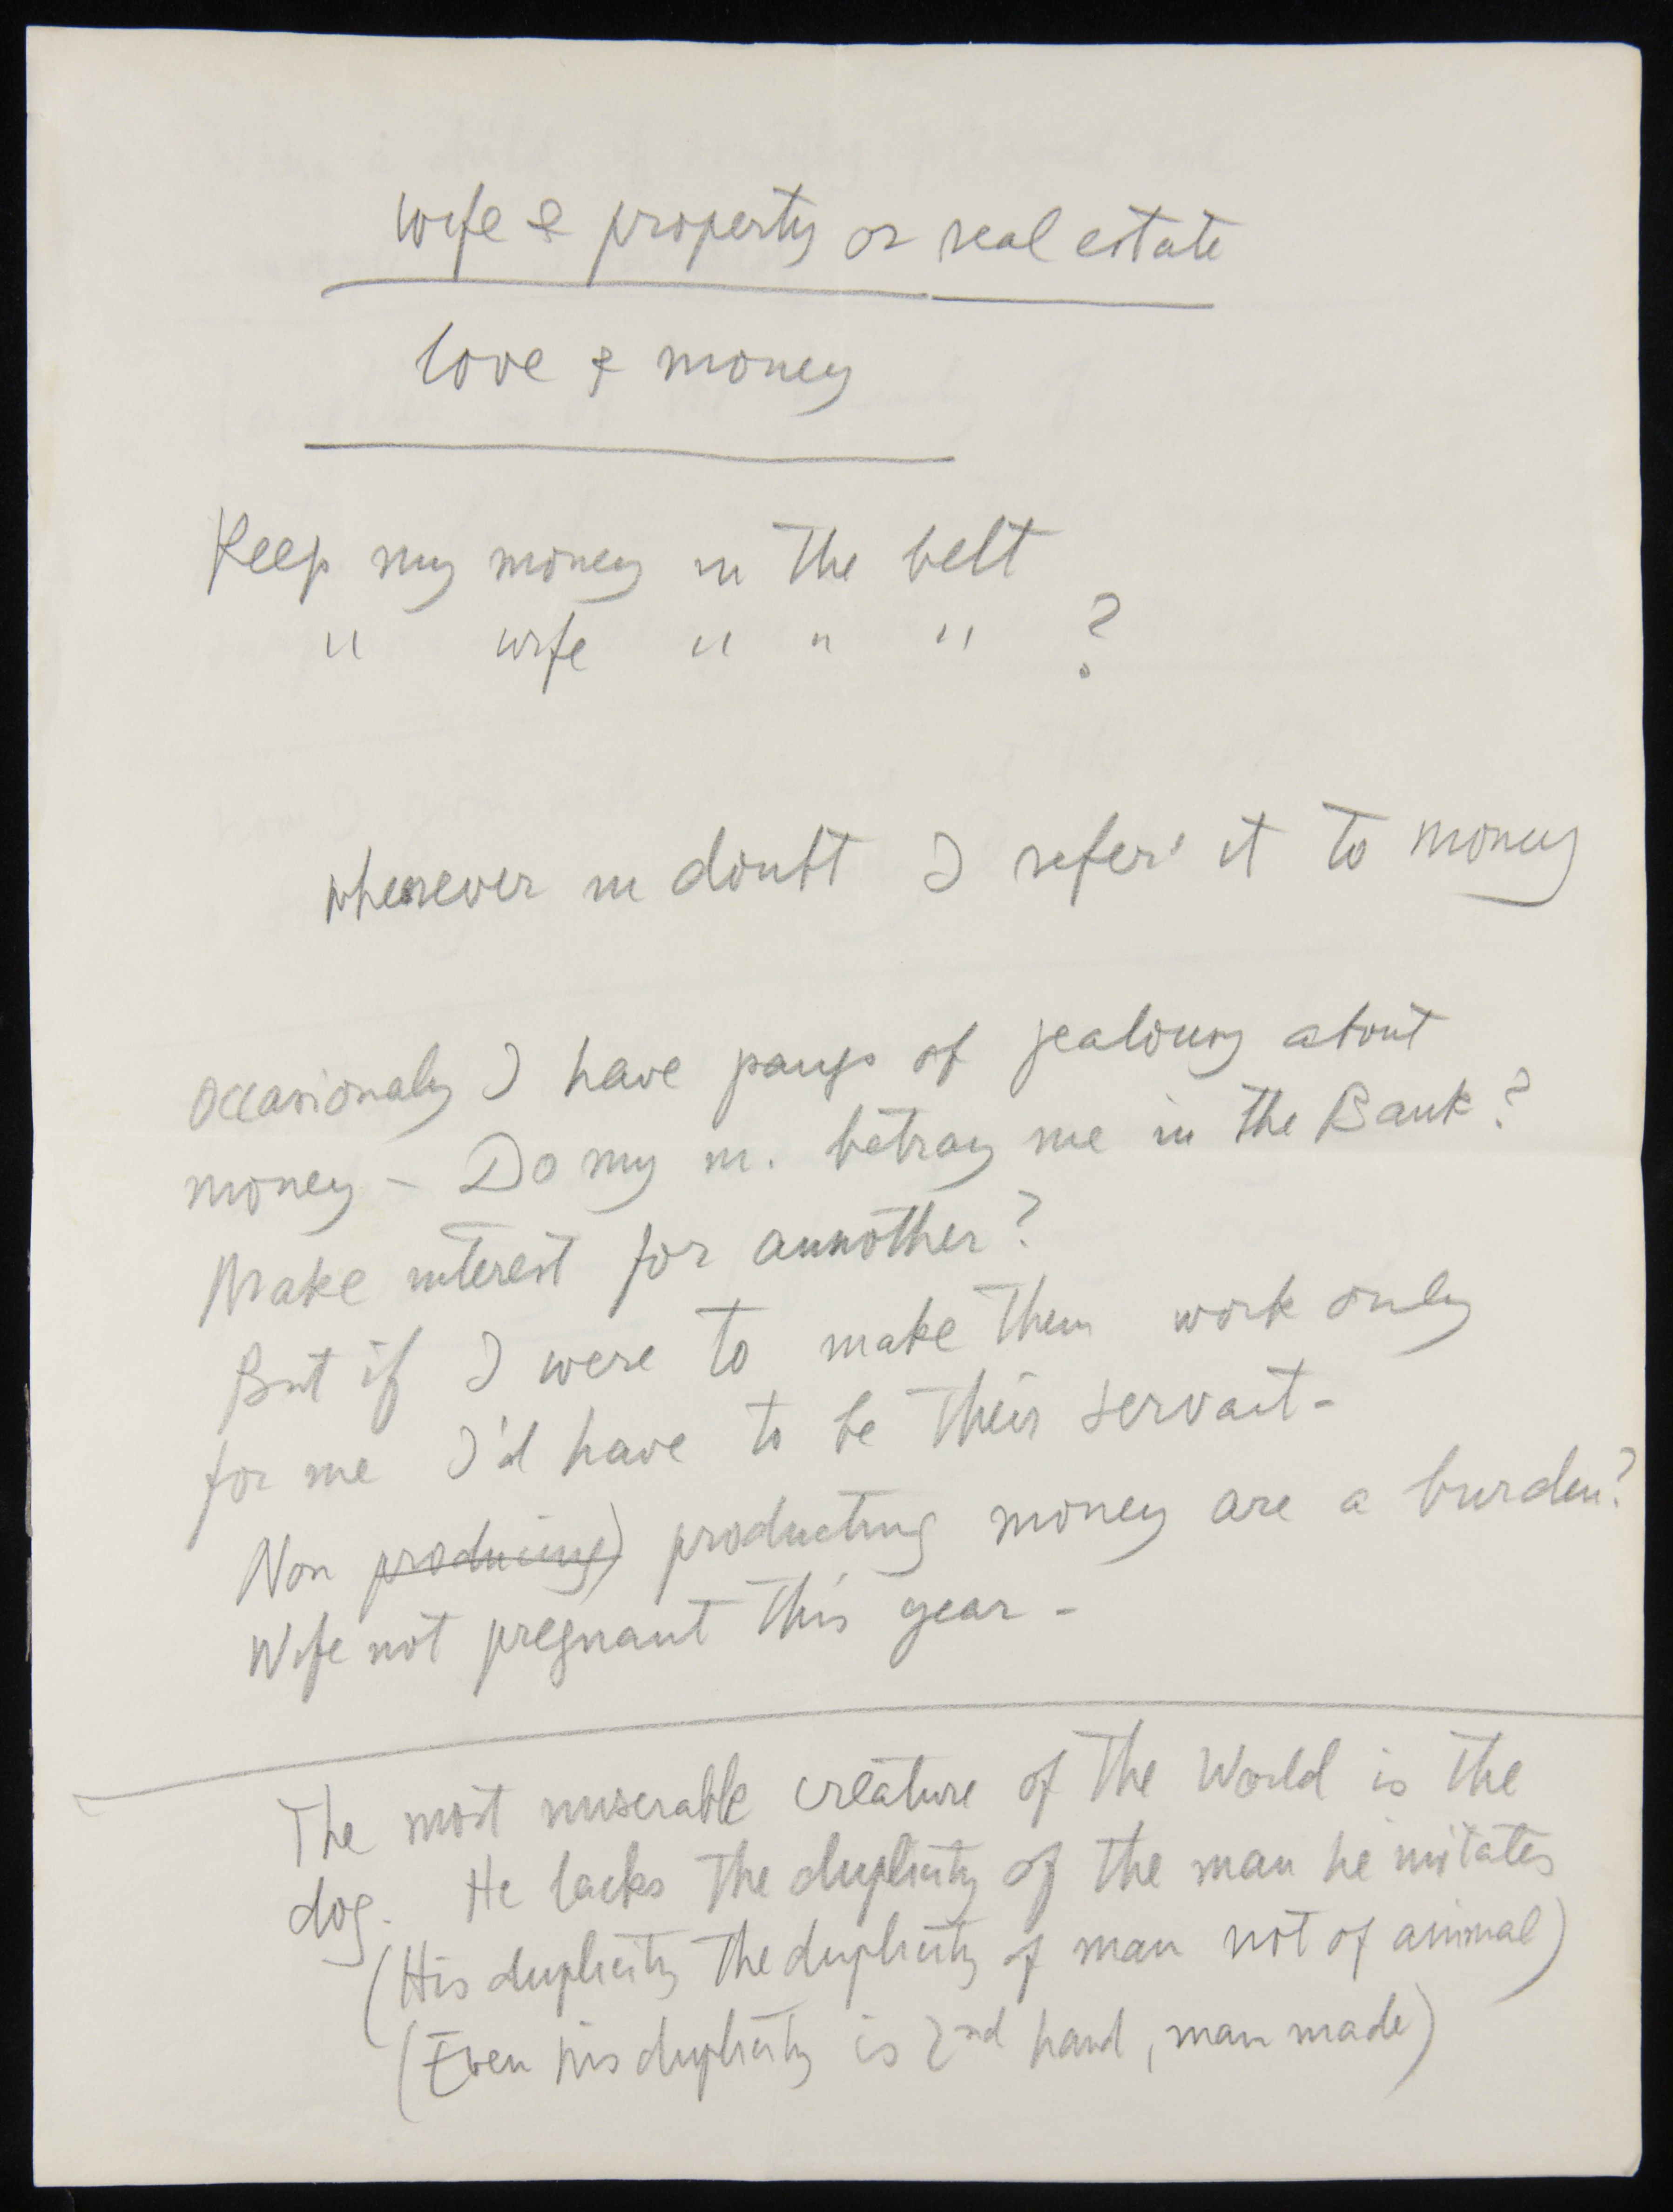 wife & property or real estate
love & money
Keep my money in the belt
" wife " " " ?
whenever in doubt I refer it to money
occasionaly I have pangs of jealousy about
money - Do my m. betray me in the Bank?
Make interest for annother?
But if I were to make them work only
for me I'd have to be their servant -
Non producing) producting money are a burden?
Wife not pregnant this year -
The most miserable creature of the World is the
dog. He lacks the duplicity of the man he imitates
(His duplicity the duplicity of man not of animal)
(Even his duplicity is 2nd hand, man made)